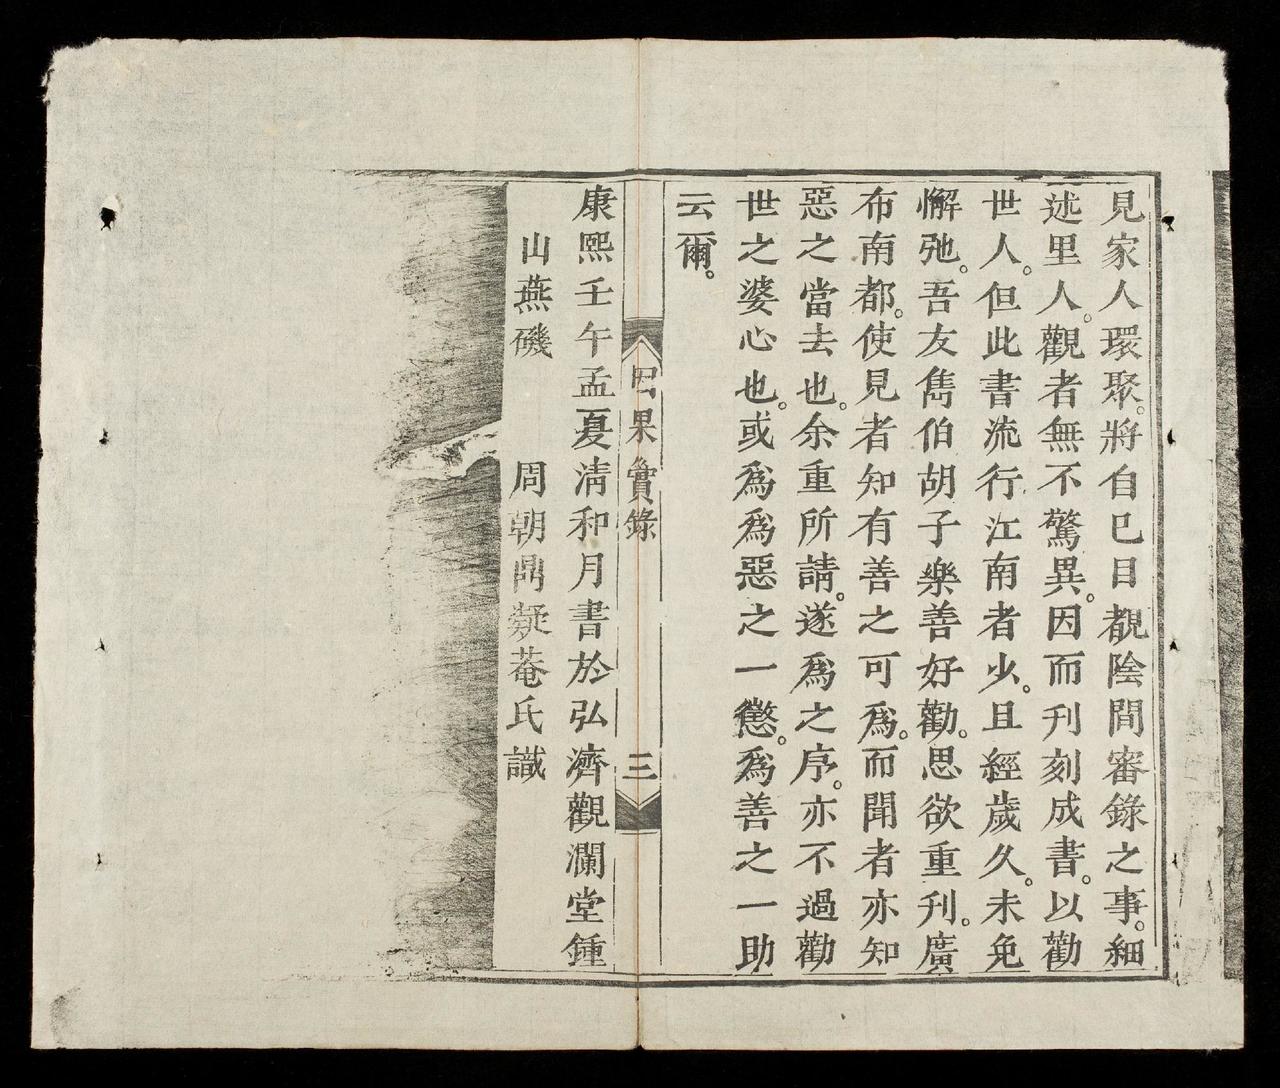 見家人環聚。將自巳目覩陰間審錄之事。細
述里人。觀者無不驚異。因而刊刻成書。以勸
世人。但此書流行江南者少。且經歲久。未免
懈弛。吾友雋伯胡子樂善好勸。思欲重刊。廣
布南都。使見者知有善之可爲。而聞者亦知
惡之當去也。余重所請。遂爲之序。亦不過勸
世之婆心也。或爲爲惡之一懲。爲善之一助
云爾。
因果實錄 三
康熙壬午孟夏清和月書於弘濟觀瀾堂鍾
山燕磯 周朝鼎凝菴氏識